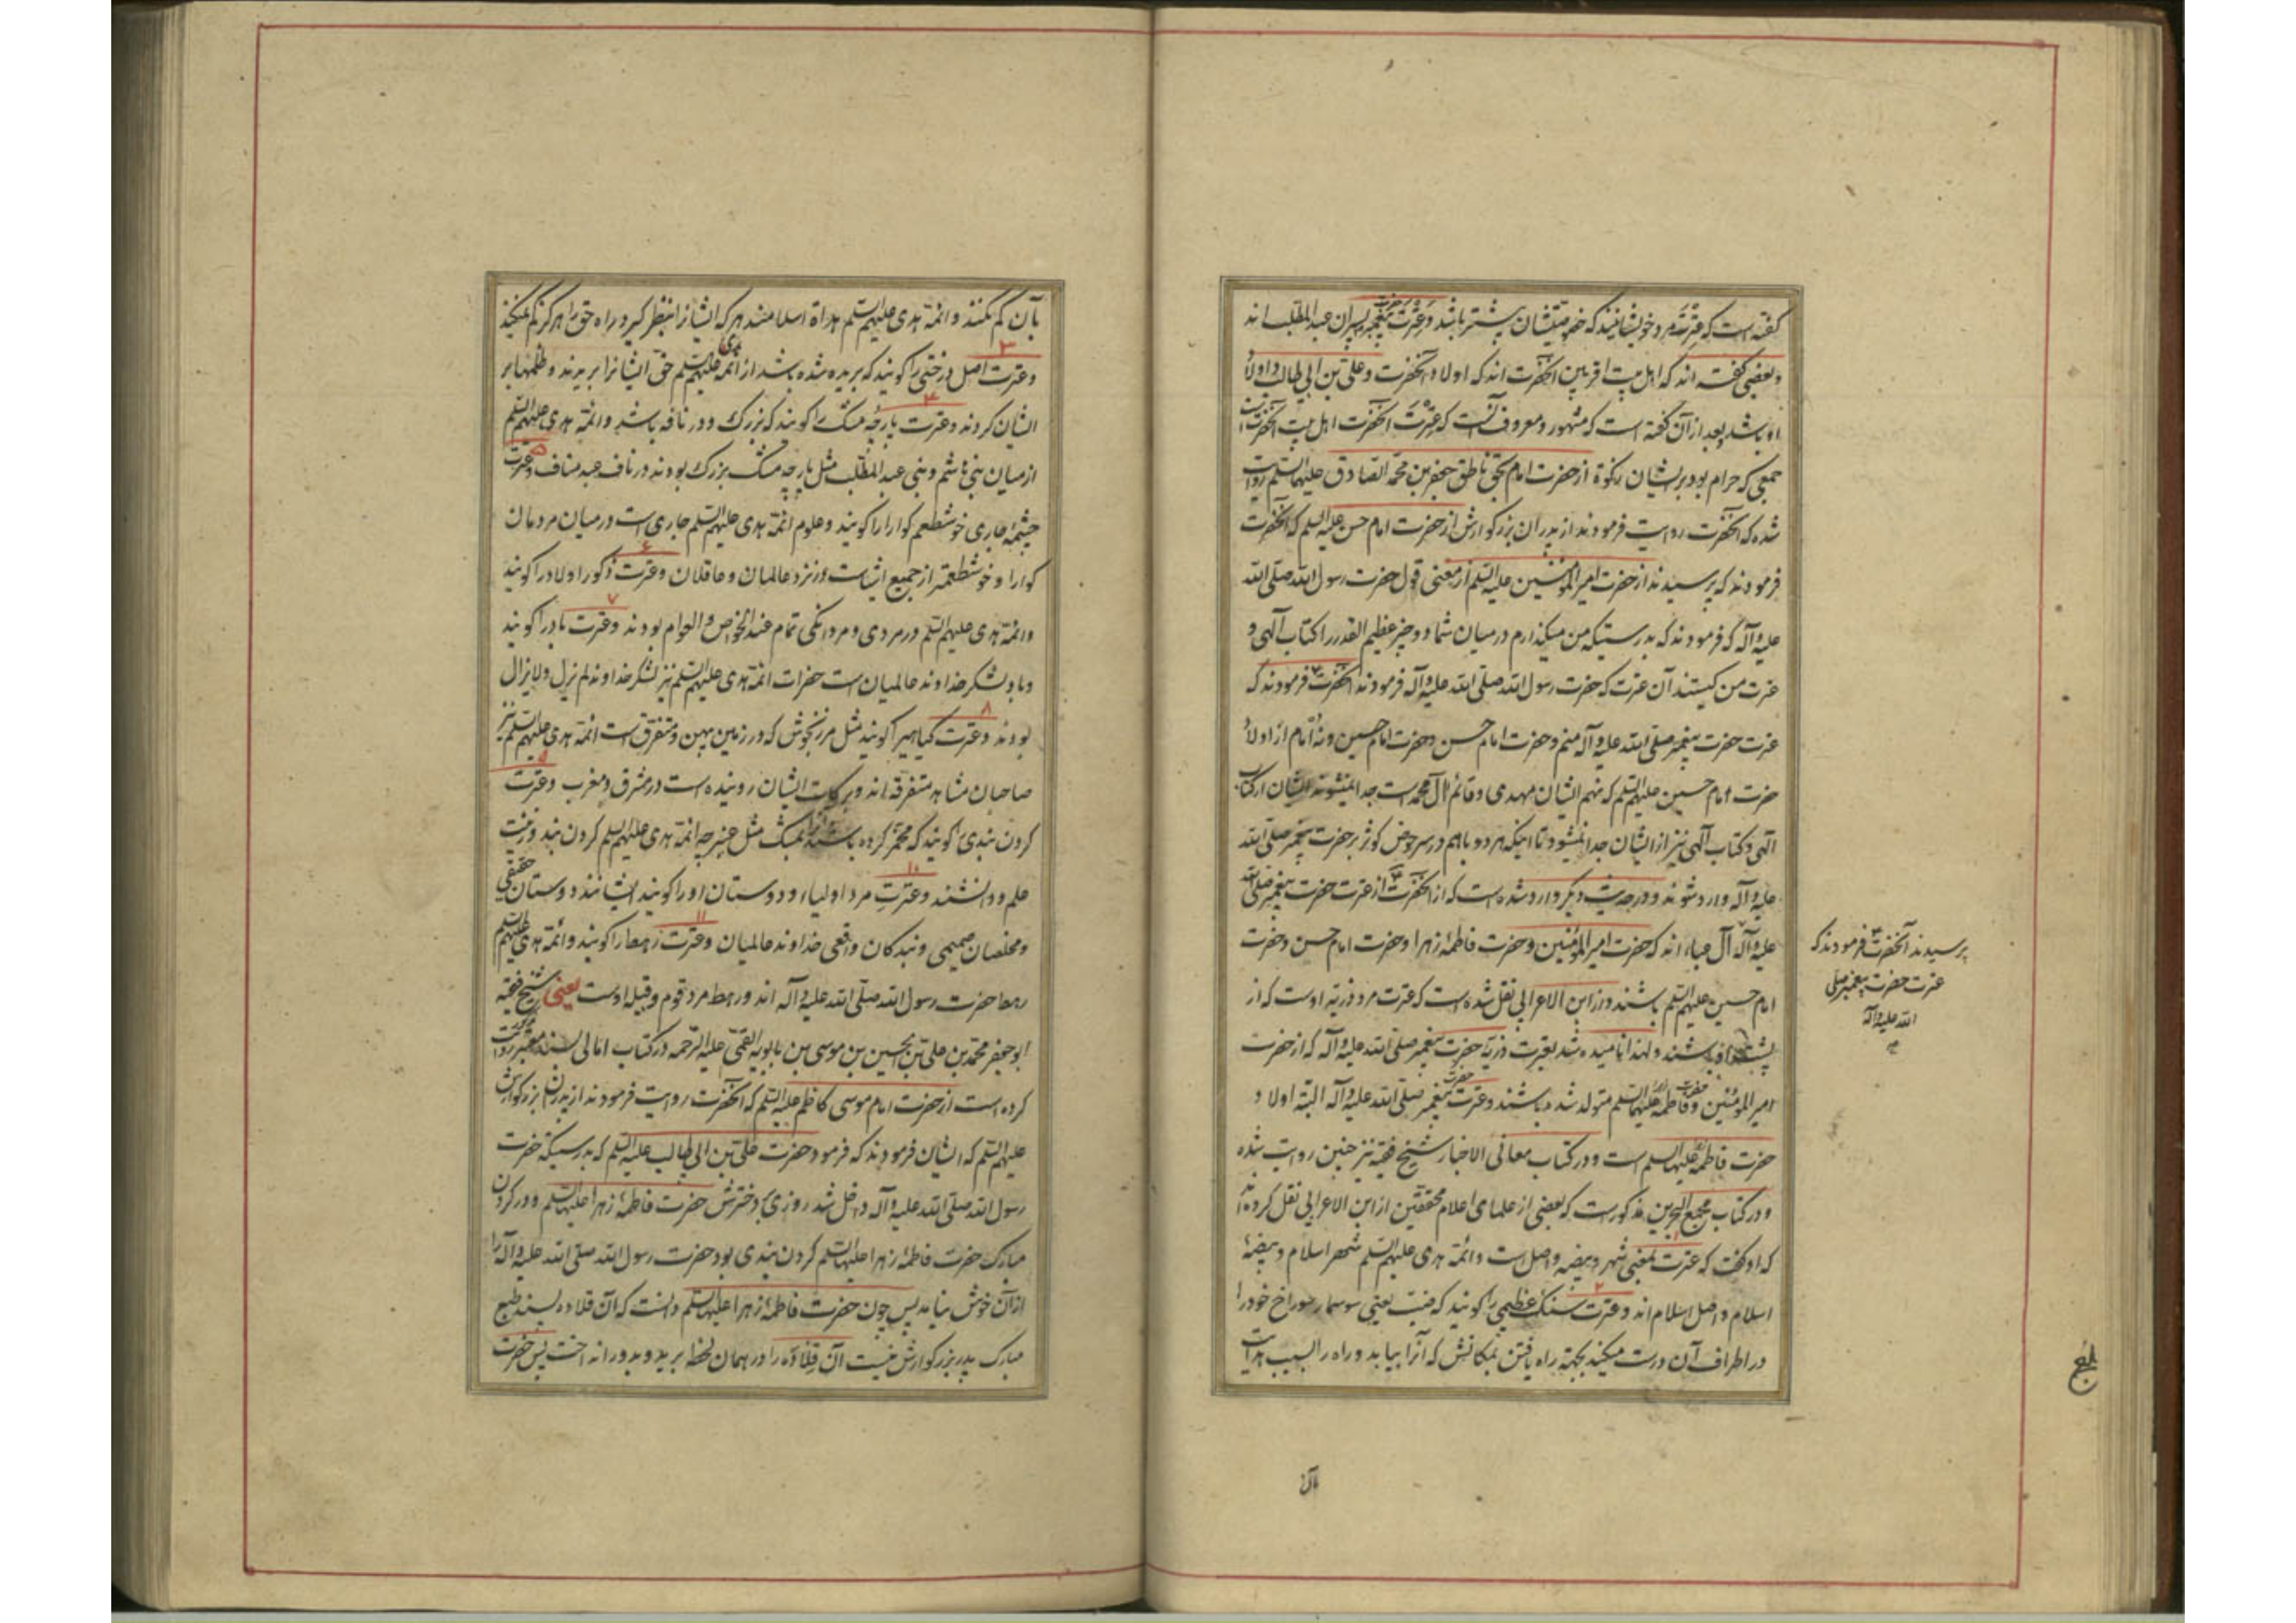 گفته است که عِترَت مرد خویشانیند که خصومتشان بیشتر باشد و عِترت حضرت پیغمبر پسران عبد المطّلب اند
و بعضی گفته اند که اهل بیت اقربین آنحضرت اند که اولاد آنحضرت و علی بن ابی طالب و اولاد
او باشد و بعد از آن گفته است که مشهور و معروف آنست که عترت آنحضرت اهل بیت آنحضرت
جمعی که حرام بود بر ایشان زکوة از حضرت امام بحق ناطق جعفر بن محمد الصادق علیهما السلم روایت
شده که آنحضرت روایت فرمودند از پدران بزرگوارش از حضرت امام حسن علیه السلم که آنحضرت
فرمودند که پرسیدند از حضرت امیر المؤمنین علیه السلم از معنی قول حضرت رسول الله صلی الله
علیه و آله که فرمودند که بدرستیکه من میگذارم در میان شما دو چیز عظیم القدر را کتاب آلهی و
عترت من کیستند آن عترت که حضرت رسول الله صلی الله علیه و آله فرمودند آنحضرت فرمودند که
عترت حضرت پیغمبر صلی الله علیه و آله منم و حضرت امام حسن و حضرت امام حسین و نه امام از اولاد
حضرت امام حسین علیهم السلم که نهم ایشان مهدی و قائم آل محمد است جدا نمیشوند ایشان از کتاب
آلهی و کتاب آلهی نیز از ایشان جدا نمیشود تا اینکه هر دو باهم در سر حوض کوثر بر حضرت پیغمبر صلی الله
علیه و آله وارد شوند و در حدیث دیگر وارد شده است که از آنحضرت از عترت حضرت پیغمبر صلی الله
علیه و آله آل عباء اند که حضرت امیر المؤمنین و حضرت فاطمه زهرا و حضرت امام حسن و حضرت
امام حسین علیهم السلم باشند و از ابن الاعرابی نقل شده است که عترت مرد ذریّه اوست که از
پشت او باشند و لهذا نامیده شد بعترت ذریّه حضرت پیغمبر صلی الله علیه و آله که از حضرت
امیر المؤمنین و حضرت فاطمه علیهما السلم متولد شده باشند و عترت حضرت پیغمبر صلی الله علیه و آله البته اولاد
حضرت فاطمه علیها السلم است و در کتاب معانی الاخبار شیخ فقیه نیز چنین روایت شده
و در کتاب مجمع البحرین مذکور است که بعضی از علمای اعلام محققین از ابن الاعرابی نقل کرده اند
که او گفت که عترت بمعنی شهر و بیضه و اصل است و ائمّه هدی علیهم السلم شهر اسلام و بیضهٔ
اسلام و اصل اسلام اند ۲ و عترت سنک عظیمی را گویند که ضبّ یعنی سوسمار سوراخ خود را
در اطراف آن درست میکند بجهة راه یافتن بمکانش که آنرا بیابد و راه را بسبب هدایت
بآن
پرسیدند آنحضرت فرمودند که
عترت حضرت پیغمبر صلی
الله علیه و آله
بلغ
بآن کم نکند و ائمّه هدی علیهم السلم هداة اسلام‌اند هر که ایشانرا بنظر گیرد راه حق را هرگز کم نمیکند
۳ و عترت اصل درختی را گویند که بریده شده باشد از ائمّه هدی علیهم السلم حق ایشانرا بریدند و ظلمها بر
ایشان کردند ۴ و عترت پارچه مشک را گویند که بزرک و در نافه باشد و ائمّه هدی علیهم السلم
از میان بنی هاشم و بنی عبد المطّلب مثل پارچه مشک بزرک بودند در ناف عبد مناف ۵ و عترت
چشمه جاری خوشطعم گوارا را گویند و علوم ائمّه هدی علیهم السلم جاری است در میان مردمان
گوارا و خوشطعمتر از جمیع اشیاست در نزد عالمان و عاقلان ۶ و عترت ذکور اولاد را گویند
و ائمّه هدی علیهم السلم در مردی و مردانگی تمام عند الخواص و العوام بودند ۷ و عترت باد را گویند
و باد لشکر خداوند عالمیان است حضرات ائمّه هدی علیهم السلم نیز لشکر خداوند لم یزل و لایزال
بودند ۸ و عترت گیاهیرا گویند مثل مرزنجوش که در زمین پهن و متفرق است ائمّه هدی علیهم السلم نیز
صاحبان مشاهد متفرقه اند و برکات ایشان روئیده است در مشرق و مغرب ۹ و عترت
کردن بندی را گویند که مخمّر کرده باشند بمشک مثل عنبرچه ائمّه هدی علیهم السلم کردن بند و زینت
علم و دانشند ۱۰ و عترتِ مرد اولیاء و دوستان او را گویند ایشانند دوستان حقیقی
و مخلصان صمیمی و بندکان واقعی خداوند عالمیان ۱۱ و عترت رهط را گویند و ائمّه هدی علیهم السلم
رهط حضرت رسول الله صلی الله علیه و آله اند و رهط مرد قوم و قبیله اوست یعنی شیخ فقیه
ابو جعفر محمد بن علی بن الحسین بن موسی بن بابویه القمّی علیه الرّحمه در کتاب امالی بسند معتبر روایت
کرده است از حضرت امام موسی کاظم علیه السلم که آنحضرت روایت فرمودند از پدران بزرگوارش
علیهم السلم که ایشان فرمودند که فرمود حضرت علی بن ابی طالب علیه السلم که بدرستیکه حضرت
رسول الله صلی الله علیه و آله داخل شد روزی بدخترش حضرت فاطمهٔ زهرا علیها السلم و در کردن
مبارک حضرت فاطمهٔ زهرا علیها السلم کردن بندی بود حضرت رسول الله صلی الله علیه و آله را
از آن خوش نیامد پس چون حضرت فاطمهٔ زهرا علیها السلم دانست که آن قلاده پسند طبع
مبارک پدر بزرگوارش نیست آن قلاده را در همان لحظه برید و بدور انداخت پس حضرت